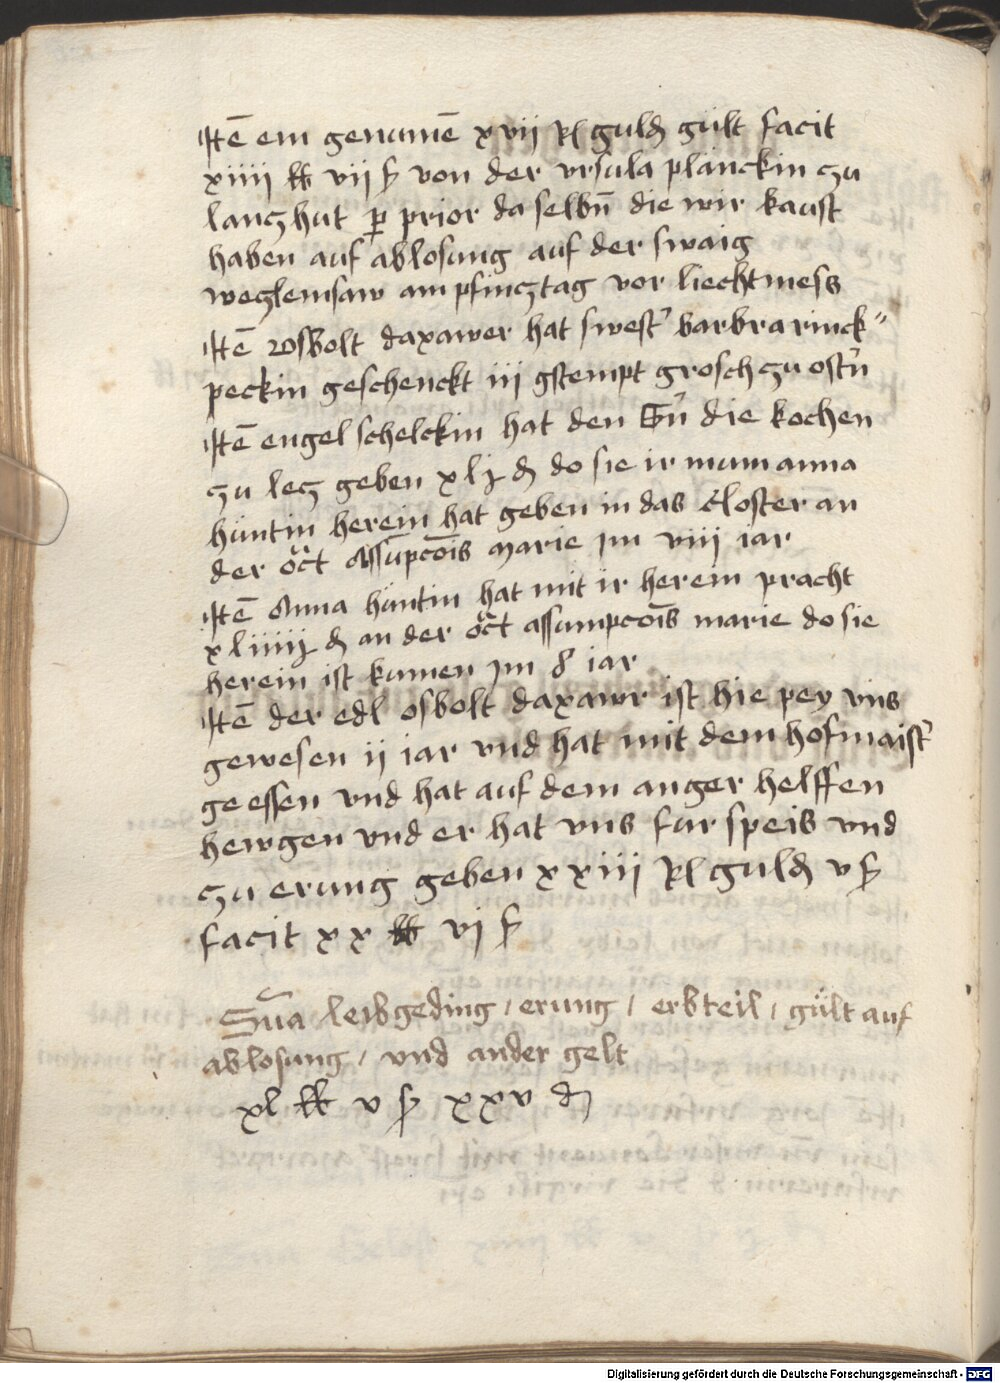 Itē ein genumē xvii Rl guld gült facit
xiiii lb vii ß von der vrsula plänckin zu
lanczhut ꝑ prior da selbn̄ die wir kauft
haben auf ablosung auf der swaig
weczlemsaw am pfincztag vor liechtmess
Itē osbolt daxawer hat swest' barbra rinck"
peckin geschenckt iij gstempt grosch zu ost'n
Itē engel schelckin hat den die kochen
zu lecz geben xlj ₰ do sie ir mum anna
hüntin herein hat geben in das closter an
der oct Assūpcōis marie jm viii iar
Itē Anna hüntin hat mit ir herein pracht
xliiiij ₰ an der oct assumpcōis marie do sie
herein ist kumen jm 8 iar
Itē der edl osbolt daxawr ist hie pey vns
gewesen ij iar vnd hat mit dem hofmaist'
geessen vnd hat auf dem anger helffen
hewgen vnd er hat vns fur speis vnd
zu erung geben xxiij Rl guld v ß
facit xx lb vj ß
Sūa leibgeding / erung / erbteil / gült auf
ablosung / vnd ander gelt
xl lb v ß xxv ₰
Digitalisierung gefördert durch die Deutsche Forschungsgemeinschaft - DFG